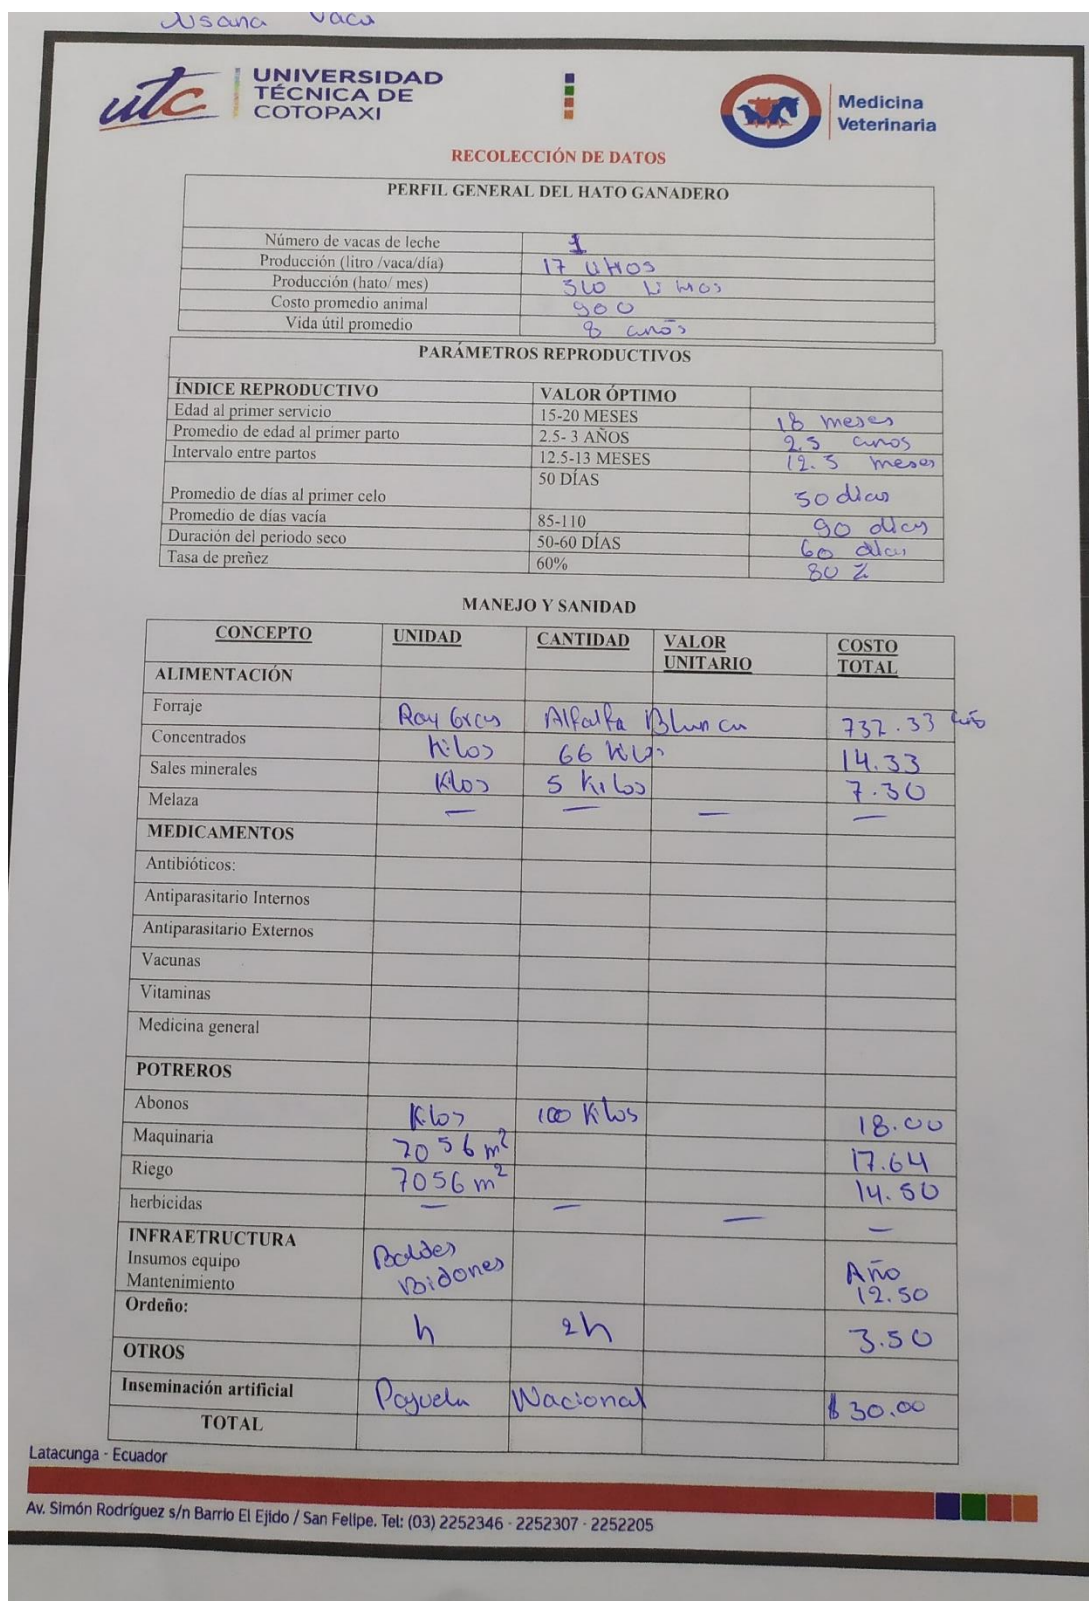 Susana Vaca
utc UNIVERSIDAD TÉCNICA DE COTOPAXI
Medicina Veterinaria
RECOLECCIÓN DE DATOS
PERFIL GENERAL DEL HATO GANADERO
Número de vacas de leche 1
Producción (litro /vaca/día) 17 litros
Producción (hato/ mes) 510 litros
Costo promedio animal 900
Vida útil promedio 8 años
PARÁMETROS REPRODUCTIVOS
ÍNDICE REPRODUCTIVO VALOR ÓPTIMO
Edad al primer servicio 15-20 MESES 18 meses
Promedio de edad al primer parto 2.5- 3 AÑOS 2.5 años
Intervalo entre partos 12.5-13 MESES 12.5 meses
Promedio de días al primer celo 50 DÍAS 50 dias
Promedio de días vacía 85-110 90 dias
Duración del periodo seco 50-60 DÍAS 60 dias
Tasa de preñez 60% 80 %
MANEJO Y SANIDAD
CONCEPTO UNIDAD CANTIDAD VALOR UNITARIO COSTO TOTAL
ALIMENTACIÓN
Forraje Ray Gras Alfalfa Blanca 737.33 año
Concentrados Kilos 66 Kilos 14.33
Sales minerales Kilos 5 Kilos 7.30
Melaza — — — —
MEDICAMENTOS
Antibióticos:
Antiparasitario Internos
Antiparasitario Externos
Vacunas
Vitaminas
Medicina general
POTREROS
Abonos Kilos 100 Kilos 18.00
Maquinaria 7056 m² 17.64
Riego 7056 m² 14.50
herbicidas — — — —
INFRAETRUCTURA
Insumos equipo Baldes Año
Mantenimiento Bidones 12.50
Ordeño: h 2h 3.50
OTROS
Inseminación artificial Pajuela Nacional $30.00
TOTAL
Latacunga - Ecuador
Av. Simón Rodríguez s/n Barrio El Ejido / San Felipe. Tel: (03) 2252346 - 2252307 - 2252205